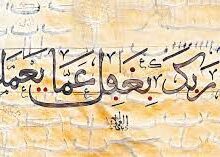 ربك بغفل عمّا يعمل